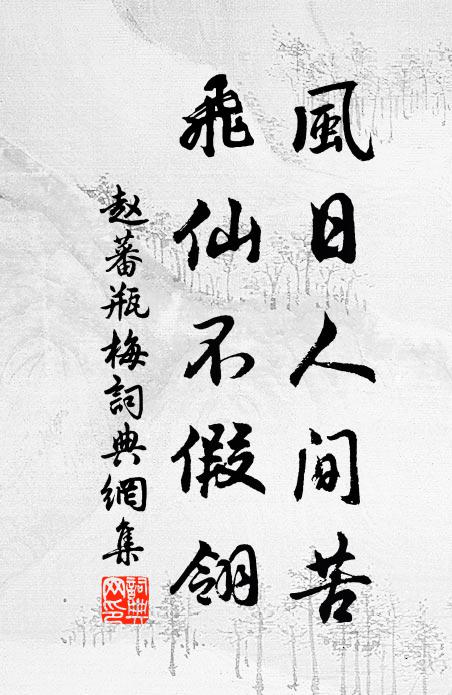 風日人间苦
飛仙不假翎
赵蕃瓶梅詞典網集